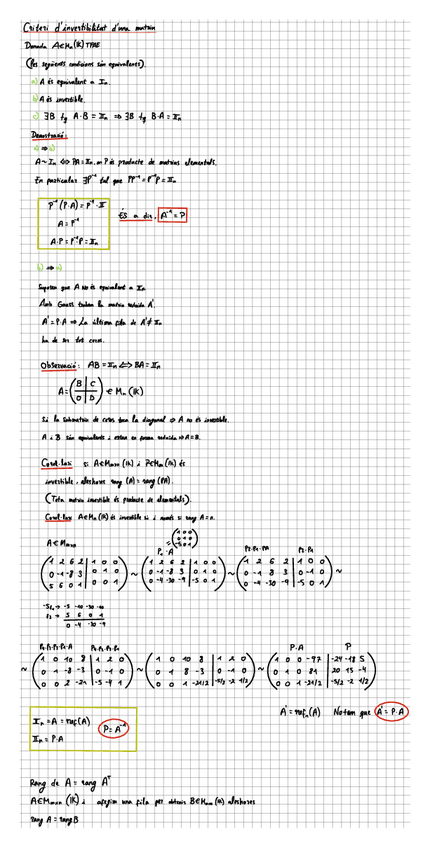 Criteri d'invertibilitat d'una matriu
Donada A∈Mₙ(𝕂) TFAE
(les següents condicions són equivalents).
a) A és equivalent a 𝕀ₙ.
b) A és invertible.
c) ∃B tq A·B = 𝕀ₙ ⇒ ∃B tq B·A = 𝕀ₙ
Demostració:
a) ⇒ b)
A ~ 𝕀ₙ ⇔ PA = 𝕀ₙ, on P és producte de matrius elementals.
En particular ∃P⁻¹ tal que PP⁻¹ = P⁻¹P = 𝕀ₙ
P⁻¹(P·A) = P⁻¹·𝕀
A = P⁻¹
A·P = P⁻¹P = 𝕀ₙ
És a dir, A⁻¹ = P
b) ⇒ a)
Suposem que A no és equivalent a 𝕀ₙ
Amb Gauss trobem la matriu reduida A'.
A' = P·A ⇒ La última fila de A' ≠ 𝕀ₙ
ha de ser tot zeros.
Observació: AB = 𝕀ₙ ⇔ BA = 𝕀ₙ
A = (B | C / 0 | D) ∈ Mₙ(𝕂)
Si la submatriu de zeros toca la diagonal ⇒ A no és invertible.
A i B són equivalents i estan en forma reduida ⇒ A = B.
Corol·lari: si A∈Mₘₓₙ(𝕂) i P∈Mₘ(𝕂) és
invertible, aleshores rang (A) = rang (PA).
(Tota matriu invertible és producte de elementals).
Corol·lari A∈Mₙ(𝕂) és invertible si i només si rang A = n.
A∈Mₘₓₙ
P₁·A
P₂·P₁·PA P₂·P₁
1 2 6 2 | 1 0 0 1 2 6 2 | 1 0 0 1 2 6 2 | 1 0 0
0 -1 -8 3 | 0 1 0 ~ 0 -1 -8 3 | 0 1 0 ~ 0 1 8 3 | 0 -1 0 ~
5 6 0 1 | 0 0 1 0 -4 -30 -9 | -5 0 1 0 -4 -30 -9 | -5 0 1
-5f₁ → -5 -10 -30 -10
f₃ → 5 6 0 1
0 -4 -30 -9
P·A P
1 0 10 8 | 1 2 0 1 0 10 8 | 1 2 0 1 0 0 -97 | -24 -18 5
~ 0 1 8 -3 | 0 -1 0 ~ 0 1 8 -3 | 0 -1 0 ~ 0 1 0 81 | 20 15 -4
0 0 2 -21 | -5 -4 1 0 0 1 -21/2 | -5/2 -2 1/2 0 0 1 -21/2 | -5/2 -2 1/2
𝕀ₙ = A = ref(A)
𝕀ₙ = P·A
P = A⁻¹
A' = refₙ(A) Notem que A' = P·A
Rang de A = rang Aᵀ
A∈Mₘₓₙ(𝕂) i afegim una fila per obtenir B∈Mₘₓₙ(𝕂) aleshores
rang A = rang B